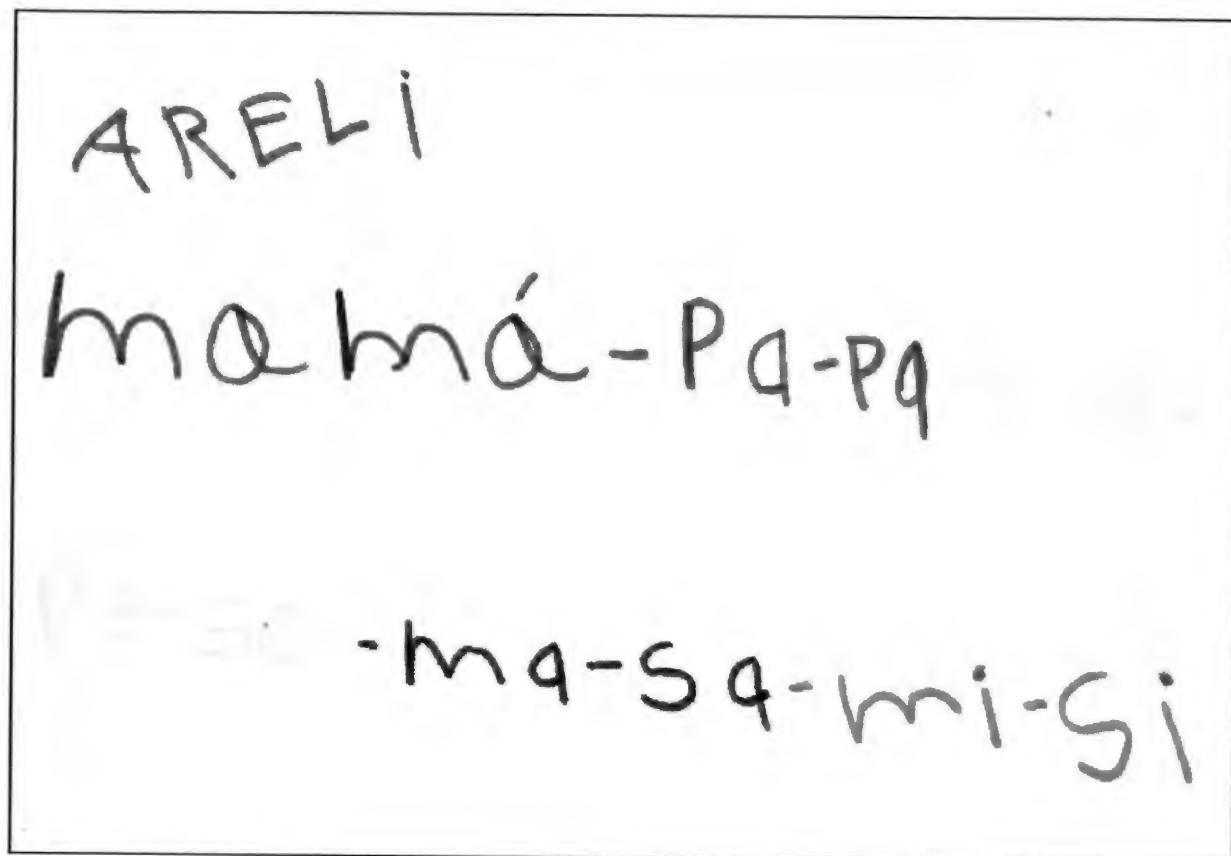 ARELi
mamá-Pa-pa
-ma-sa-mi-si